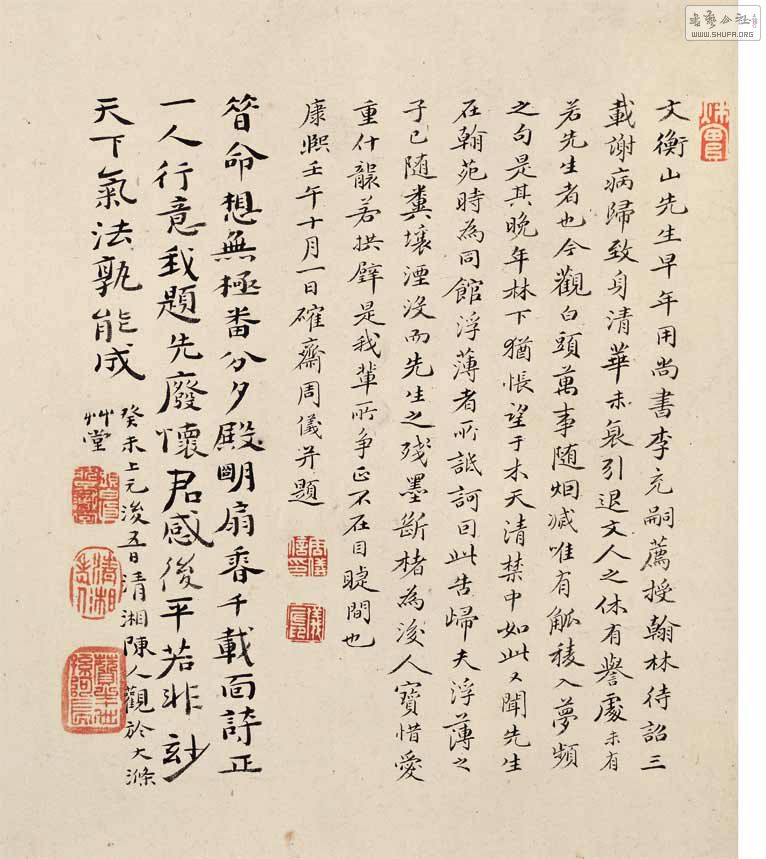 文衡山先生早年用尚書李充嗣薦授翰林待詔三
載謝病歸致身清華未衰引退文人之休有譽處未有
若先生者也今觀白頭萬事随烟滅唯有觚稜入夢頻
之句是其晚年林下猶悵望于木天清禁中如此又聞先生
在翰苑時為同館浮薄者所詆訶回此告歸夫浮薄之
子已随糞壤湮没而先生之残墨斷楮為後人寶惜愛
重什襲若拱璧是我輩所争正不在目睫間也
康熙壬午十月一日確齋周儀并題
簪命想無極番分夕殿明扇香千載面詩正
一人行意我題先廢懷君感後平若非玅
天下氣法孰能成
癸未上元後五日清湘陳人觀於大滌
艸堂
周儀
清湘
書藝公社
WWW.SHUFA.ORG